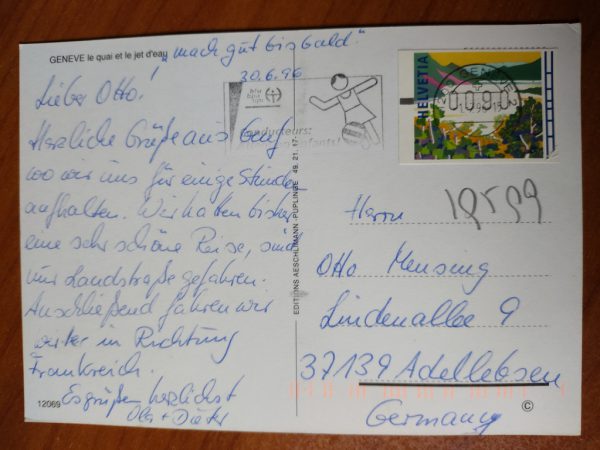 GENEVE le quai et le jet d'eau
„mach gut bis bald."
30.6.96
Lieber Otto!
Herzliche Grüße aus Genf
wo wir uns für einige Stunden
aufhalten. Wir hatten bisher
eine sehr schöne Reise, sind
nur Landstraße gefahren.
Anschließend fahren wir
weiter in Richtung
Frankreich.
Es grüßen herzlichst
+ Dieter
12069
EDITIONS AESCHLIMANN PUPLINGE 49.21.17
conducteurs:
enfants!
HELVETIA
GENEVE 2
0090
Herrn
19599
Otto Mensing
Lindenallee 9
37139 Adelebsen
Germany
©